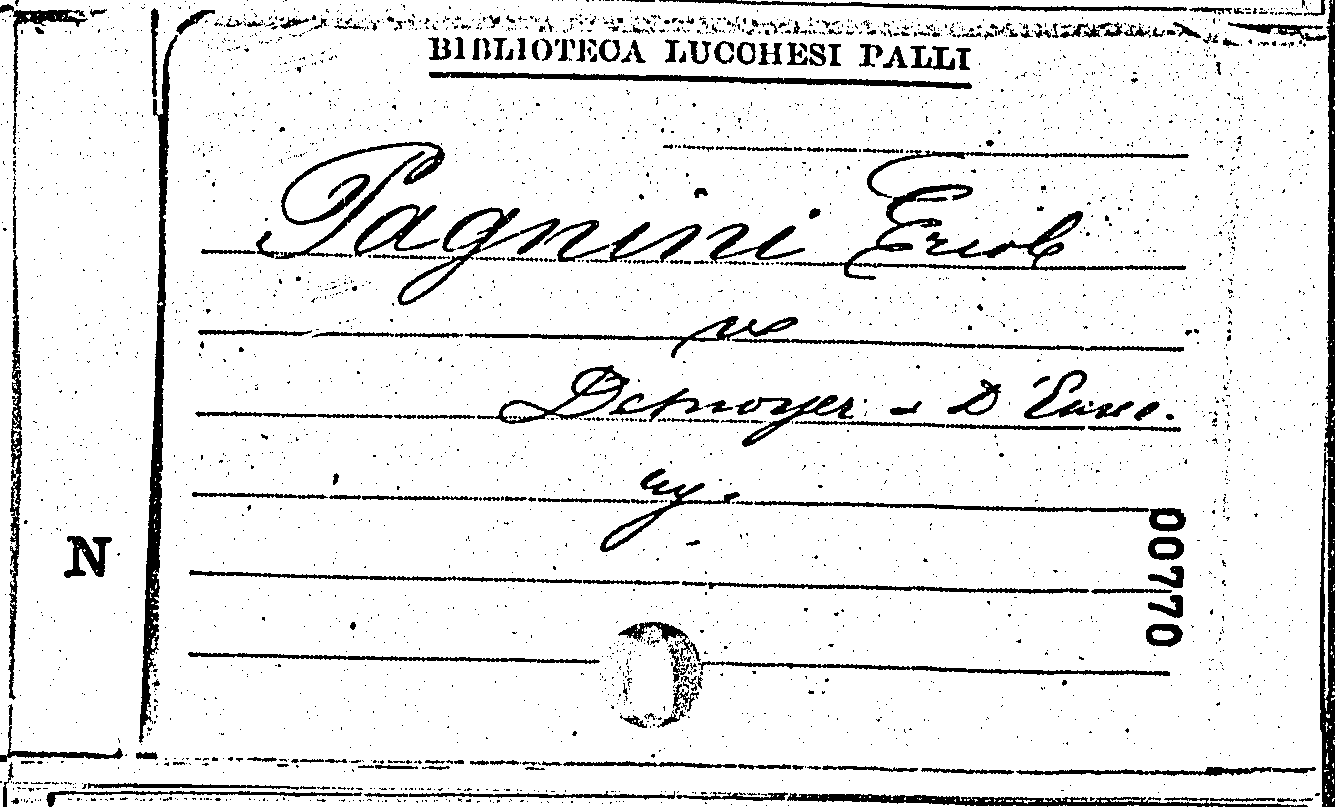 BIBLIOTECA LUCCHESI PALLI
Pagnini Ercole
vo
Desnoyer e D'Enne.
ry.
N
00770